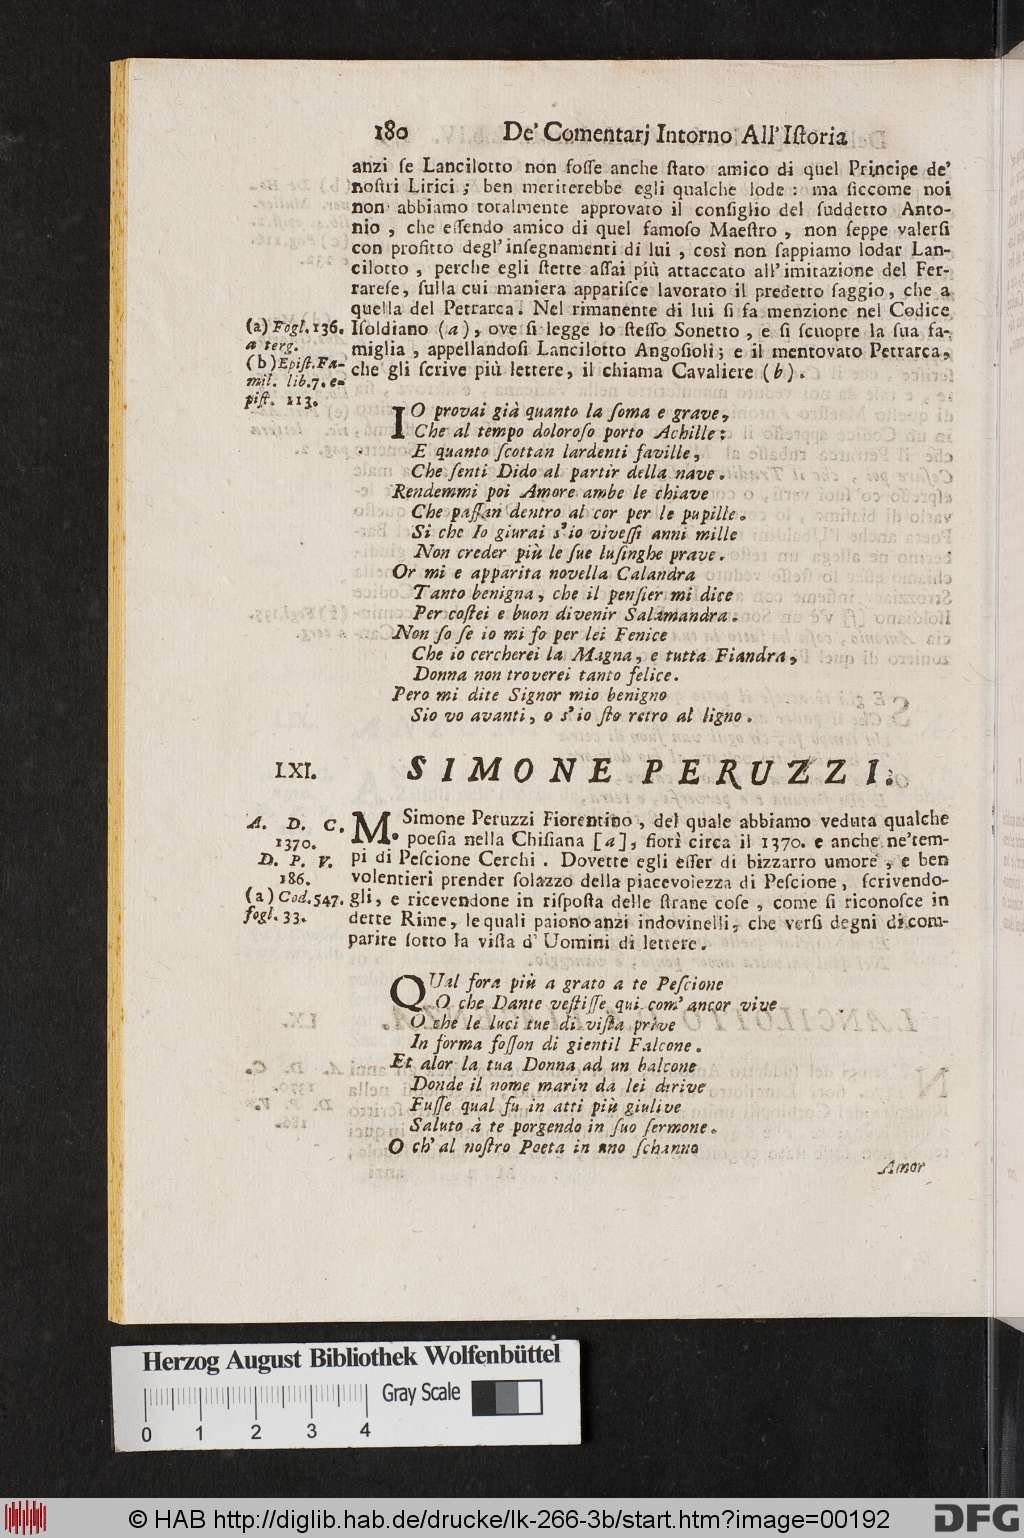 180 De' Comentarj Intorno All' Iſtoria
anzi ſe Lancilotto non foſſe anche ſtato amico di quel Principe de'
noſtri Lirici; ben meriterebbe egli qualche lode: ma ſiccome noi
non abbiamo totalmente approvato il conſiglio del ſuddetto Anto-
nio, che eſſendo amico di quel famoſo Maeſtro, non ſeppe valerſi
con profitto degl' inſegnamenti di lui, così non ſappiamo lodar Lan-
cilotto, perche egli ſtette aſſai più attaccato all' imitazione del Fer-
rareſe, ſulla cui maniera appariſce lavorato il predetto ſaggio, che a
quella del Petrarca. Nel rimanente di lui ſi fa menzione nel Codice
Iſoldiano (a), ove ſi legge lo ſteſſo Sonetto, e ſi ſcuopre la ſua fa-
miglia, appellandoſi Lancilotto Angoſioli; e il mentovato Petrarca,
che gli ſcrive più lettere, il chiama Cavaliere (b).
(a) Fogl. 136.
a terg.
(b) Epiſt. Fa-
mil. lib. 7. e-
piſt. 113.
IO provai già quanto la ſoma e grave,
Che al tempo doloroſo porto Achille:
E quanto ſcottan lardenti faville,
Che ſenti Dido al partir della nave.
Rendemmi poi Amore ambe le chiave
Che paſſan dentro al cor per le pupille.
Si che Io giurai s'io viveſſi anni mille
Non creder più le ſue luſinghe prave.
Or mi e apparita novella Calandra
Tanto benigna, che il penſier mi dice
Per coſtei e buon divenir Salamandra.
Non ſo ſe io mi fo per lei Fenice
Che io cercherei la Magna, e tutta Fiandra,
Donna non troverei tanto felice.
Pero mi dite Signor mio benigno
Sio vo avanti, o s'io ſto retro al ligno.
LXI. SIMONE PERUZZI.
A. D. C.
1370.
D. P. V.
186.
(a) Cod. 547.
fogl. 33.
M. Simone Peruzzi Fiorentino, del quale abbiamo veduta qualche
poeſia nella Chiſiana [a], fiorì circa il 1370. e anche ne' tem-
pi di Peſcione Cerchi. Dovette egli eſſer di bizzarro umore, e ben
volentieri prender ſolazzo della piacevolezza di Peſcione, ſcrivendo-
gli, e ricevendone in riſpoſta delle ſtrane coſe, come ſi riconoſce in
dette Rime, le quali paiono anzi indovinelli, che verſi degni di com-
parire ſotto la viſta d' Uomini di lettere.
QUal fora più a grato a te Peſcione
O che Dante veſtiſſe qui com' ancor vive
O che le luci tue di viſta prive
In forma foſſon di gientil Falcone.
Et alor la tua Donna ad un balcone
Donde il nome marin da lei dirive
Fuſſe qual fu in atti più giulive
Saluto à te porgendo in ſuo ſermone.
O ch' al noſtro Poeta in uno ſchanno
Amor
Herzog August Bibliothek Wolfenbüttel
Gray Scale
0 1 2 3 4
© HAB http://diglib.hab.de/drucke/lk-266-3b/start.htm?image=00192
DFG